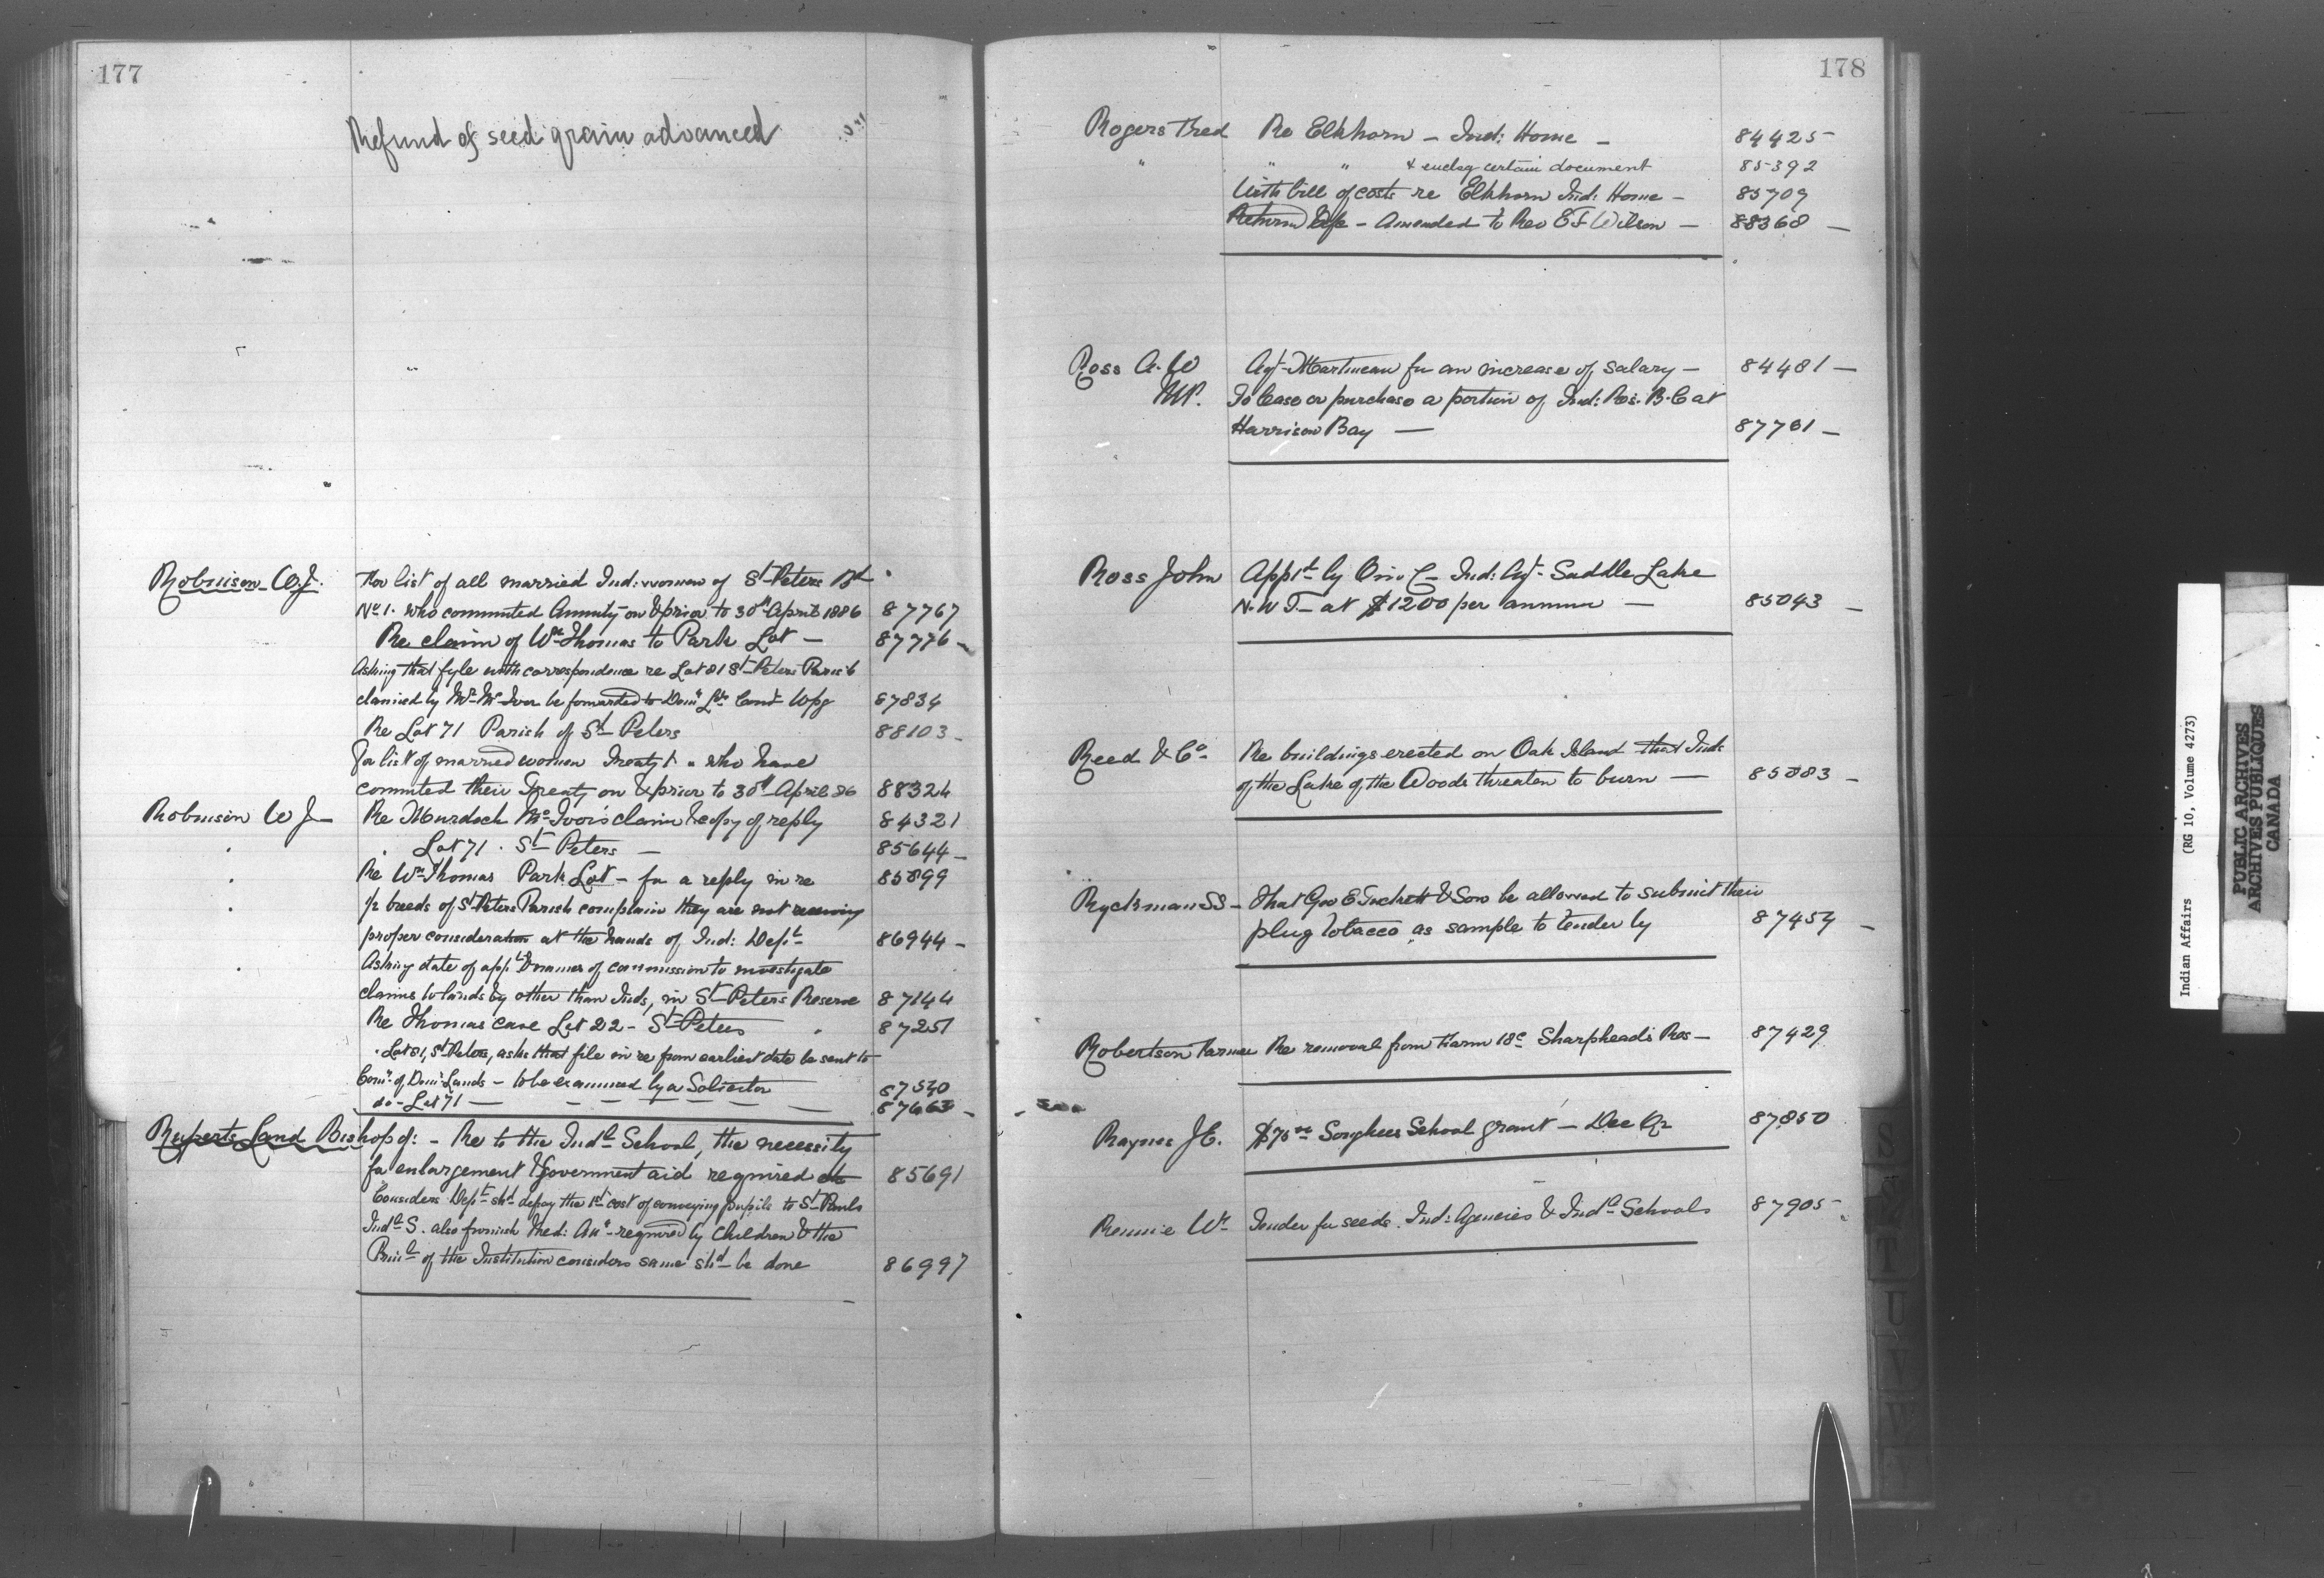 177
Refund of seed grain advanced
Robinson W.J. For list of all married Ind: women of St Peters Bd
No 1. who commuted Annuity on & prior to 30th April 1886 87767
Re claim of Wm Thomas to Park Lot — 87776 -
Asking that fyle with correspondence re Lot 81 St Peters Parish
claimed by Mr McIvor be forwarded to Domn Lds Comr Wpg 87834
Re Lot 71 Parish of St Peters 88103 -
For list of married women Treaty 1 who have
commuted their Treaty on & prior to 30th April 86 88324
Robinson W J Re Murdoch McIvor's claim & copy of reply 84321
" Lot 71 . St Peters — 85644 -
" Re Wm Thomas Park Lot - for a reply in re 85899
" ½ breeds of St Peters Parish complain they are not receiving
proper consideration at the hands of Ind: Dept 86944 -
" Asking date of appt & names of commission to investigate
claims to lands by other than Inds, in St Peters Reserve 87144
Re Thomas case Lot 22 - St Peters 87251
" Lot 81, St Peters, asks that file in re from earliest date be sent to
Comr of Domn Lands - to be examined by a Solicitor 87540
do - Lot 71 — 87663 -
Ruperts Land Bishop of: - Re to the Indl School, the necessity
for enlargement & Government aid required 85691
Considers Dept shd defray the 1st cost of conveying pupils to St Pauls
Indl S. also furnish Med: Att required by children & the
Prinl of the Institution considers same shd be done 86997
178
Rogers Fred Re Elkhorn - Ind: Home - 84425
" " " & encl'g certain document 85392
With bill of costs re Elkhorn Ind: Home - 85709
Return - Amended to Rev E F Wilson — 88368 —
Ross A. W Agt Martineau for an increase of salary — 84481 —
M.P. To lease or purchase a portion of Ind: Res. B.C at
Harrison Bay — 87701 —
Ross John Apptd by O in C - Ind: Agt - Saddle Lake
N.W.T. - at $1200 per annum — 85043 —
Reed & Co Re buildings erected on Oak Island that Inds
of the Lake of the Woods threaten to burn — 85083 -
Ryckman SS - That Geo E Tuckett & Son be allowed to submit their
plug tobacco as sample to tender by 87454 -
Robertson Farmer Re removal from Farm 18c Sharphead's Res - 87429
Raynes J E. $75 00 Songhees School grant - Dec Qr 87850
Rennie Wm Tender for seeds. Ind: Agencies & Indl Schools 87905 -
S
T
U
V
W
Y
Indian Affairs (RG 10, Volume 4273)
PUBLIC ARCHIVES
ARCHIVES PUBLIQUES
CANADA